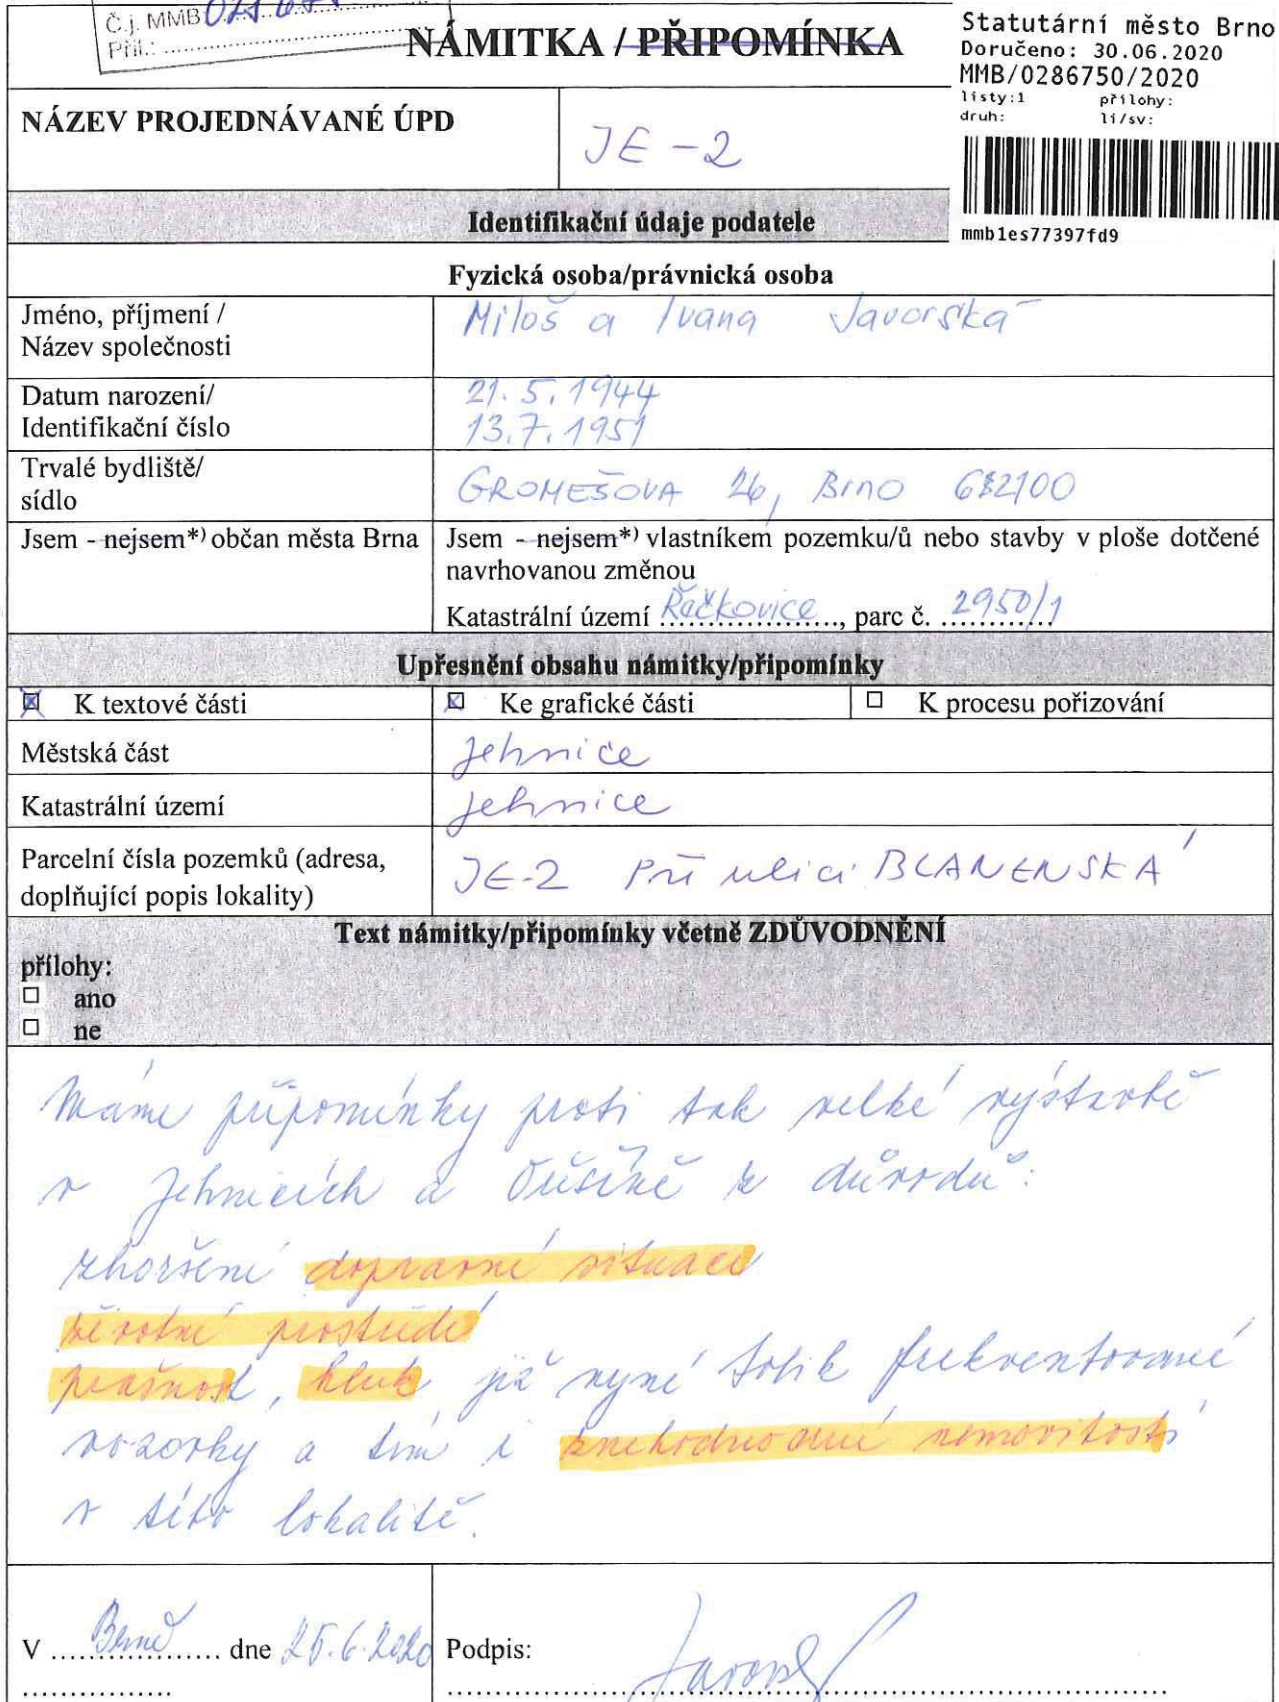 Č.j. MMB
Příl.:
NÁMITKA / PŘIPOMÍNKA
Statutární město Brno
Doručeno: 30.06.2020
MMB/0286750/2020
listy:1 přílohy:
druh: li/sv:
mmb1es77397fd9
NÁZEV PROJEDNÁVANÉ ÚPD
JE-2
Identifikační údaje podatele
Fyzická osoba/právnická osoba
Jméno, příjmení /
Název společnosti
Miloš a Ivana Javorská
Datum narození/
Identifikační číslo
21.5.1944
13.7.1951
Trvalé bydliště/
sídlo
GROMEŠOVA 26, Brno 62100
Jsem - nejsem*) občan města Brna
Jsem - nejsem*) vlastníkem pozemku/ů nebo stavby v ploše dotčené
navrhovanou změnou
Katastrální území Řečkovice, parc č. 2950/1
Upřesnění obsahu námitky/připomínky
K textové části
Ke grafické části
K procesu pořizování
Městská část
Jehnice
Katastrální území
Jehnice
Parcelní čísla pozemků (adresa,
doplňující popis lokality)
JE-2 Při ulici BLANENSKÁ
Text námitky/připomínky včetně ZDŮVODNĚNÍ
přílohy:
ano
ne
Máme připomínky proti tak velké výstavbě
v Jehnicích a Ořešíně z důvodů:
zhoršení dopravní situace
životní prostředí
prašnost, hluk již nyní tolik frekventované
vozovky a tím i znehodnocení nemovitostí
v této lokalitě.
V Brně dne 25.6.2020
Podpis: